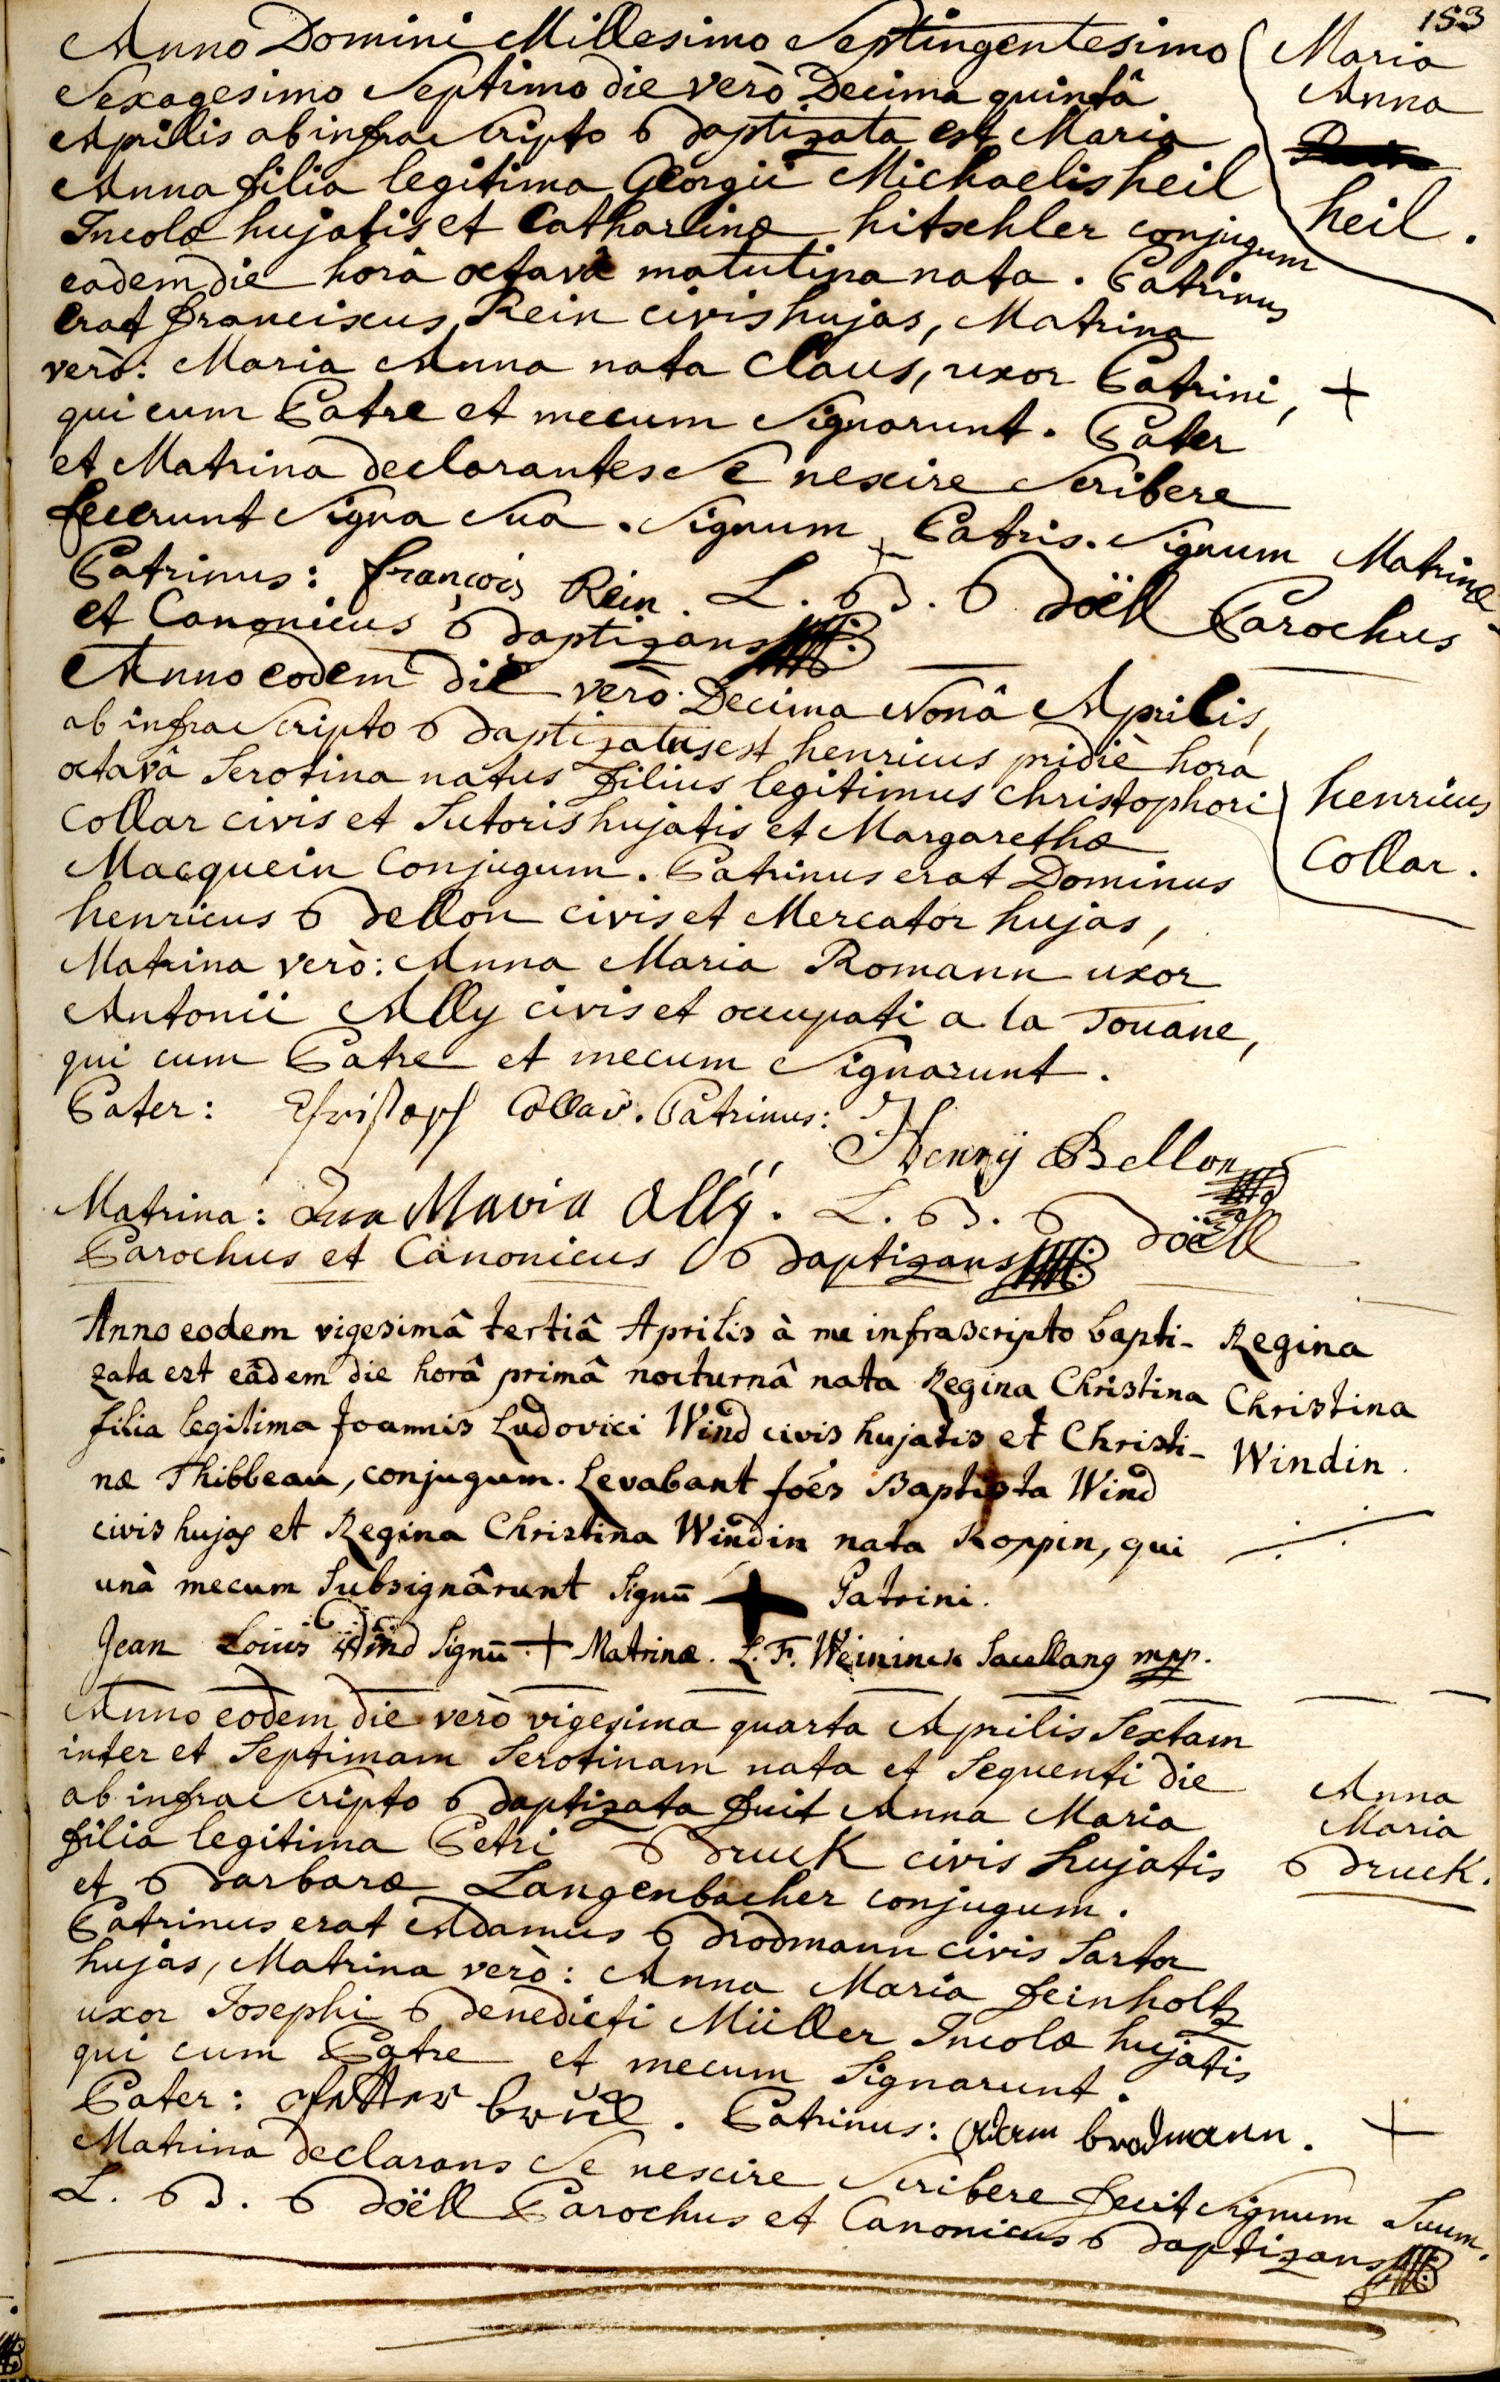 153
Anno Domini Millesimo Septingentesimo
Sexagesimo Septimo die verò Decima quintâ
Aprilis ab infra Scripto Baptizata est Maria
Anna filia legitima Georgii Michaelis heil
Incolæ hujatis et Catharinæ hitschler conjugum
eadem die horâ octavâ matutina nata. Patrinus
erat franciscus Rein civis hujas, Matrina
verò: Maria Anna nata Claus, uxor Patrini, +
qui cum Patre et mecum Signarunt. Pater
et Matrina declarantes Se nescire Scribere
fecerunt Signa Sua. Signum + Patris. Signum Matrinæ.
Patrinus: françois Rein. L. B. Boëll Parochus
et Canonicus Baptizans
Maria
Anna
heil.
Anno eodem die verò Decima Nonâ Aprilis,
ab infra Scripto Baptizatus est henricus pridiè horâ
octavâ Serotina natus filius legitimus christophori
Collar civis et Sutoris hujatis et Margarethæ
Macquein Conjugum. Patrinus erat Dominus
henricus Bellon civis et Mercator hujas,
Matrina verò: Anna Maria Romann uxor
Antonii Ally civis et occupati a la Touane,
qui cum Patre et mecum Signarunt.
Pater: Christoph Collar. Patrinus: Henrÿ Bellon
Matrina: Maria Allÿ. L. B. Boëll
Parochus et Canonicus Baptizans
henricus
Collar.
Anno eodem vigesimâ tertiâ Aprilis à me infrascripto bapti-
zata est eâdem die horâ primâ nocturnâ nata Regina Christina
filia legitima Joannis Ludovici Wind civis hujatis et Christi-
næ Thibbeau, conjugum. Levabant Joës Baptista Wind
civis hujas et Regina Christina Windin nata Koppin, qui
unà mecum Subsignârunt Signū + Patrini.
Jean Louis Wind Signū + Matrinæ. L. F. Weininck Sacellang mpp.
Regina
Christina
Windin.
Anno eodem die verò vigesima quarta Aprilis Sextam
inter et Septimam Serotinam nata et Sequenti die
ab infra Scripto Baptizata fuit Anna Maria
filia legitima Petri Bruck civis hujatis
et Barbaræ Langenbacher conjugum.
Patrinus erat Adamus Brodmann civis Sartor
hujas, Matrina verò: Anna Maria feinholtz
uxor Josephi Benedicti Müller Incolæ hujatis
qui cum Patre et mecum Signarunt.
Pater: . Patrinus: Adam brodmann. +
Matrina declarans Se nescire Scribere fecit Signum Suum.
L. B. Boëll Parochus et Canonicus Baptizans
Anna
Maria
Bruck.